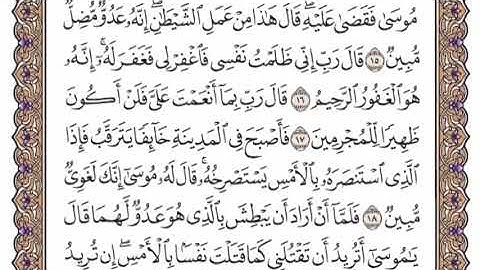 مُوسَىٰ فَقَضَىٰ عَلَيْهِ ۖ قَالَ هَٰذَا مِنْ عَمَلِ ٱلشَّيْطَٰنِ ۖ إِنَّهُۥ عَدُوٌّ مُّضِلٌّ
مُّبِينٌ ١٥ قَالَ رَبِّ إِنِّى ظَلَمْتُ نَفْسِى فَٱغْفِرْ لِى فَغَفَرَ لَهُۥٓ ۚ إِنَّهُۥ
هُوَ ٱلْغَفُورُ ٱلرَّحِيمُ ١٦ قَالَ رَبِّ بِمَآ أَنْعَمْتَ عَلَىَّ فَلَنْ أَكُونَ
ظَهِيرًا لِّلْمُجْرِمِينَ ١٧ فَأَصْبَحَ فِى ٱلْمَدِينَةِ خَآئِفًا يَتَرَقَّبُ فَإِذَا
ٱلَّذِى ٱسْتَنصَرَهُۥ بِٱلْأَمْسِ يَسْتَصْرِخُهُۥ ۚ قَالَ لَهُۥ مُوسَىٰٓ إِنَّكَ لَغَوِىٌّ
مُّبِينٌ ١٨ فَلَمَّآ أَنْ أَرَادَ أَن يَبْطِشَ بِٱلَّذِى هُوَ عَدُوٌّ لَّهُمَا قَالَ
يَٰمُوسَىٰٓ أَتُرِيدُ أَن تَقْتُلَنِى كَمَا قَتَلْتَ نَفْسًۢا بِٱلْأَمْسِ ۖ إِن تُرِيدُ